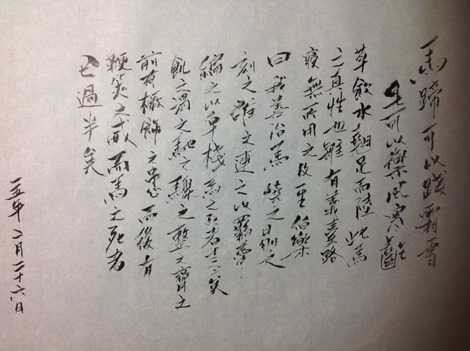 馬蹄可以踐霜雪
毛可以禦風寒齕
草飲水翹足而陸此馬
之真性也雖有義臺路
寢無所用之及至伯樂
曰我善治馬燒之剔之
刻之雒之連之以羈馽
編之以皁棧馬之死者十二三矣
飢之渴之馳之驟之整之齊之
前有橛飾之患而後有
鞭筴之威而馬之死者
已過半矣
一五年 月二十六日